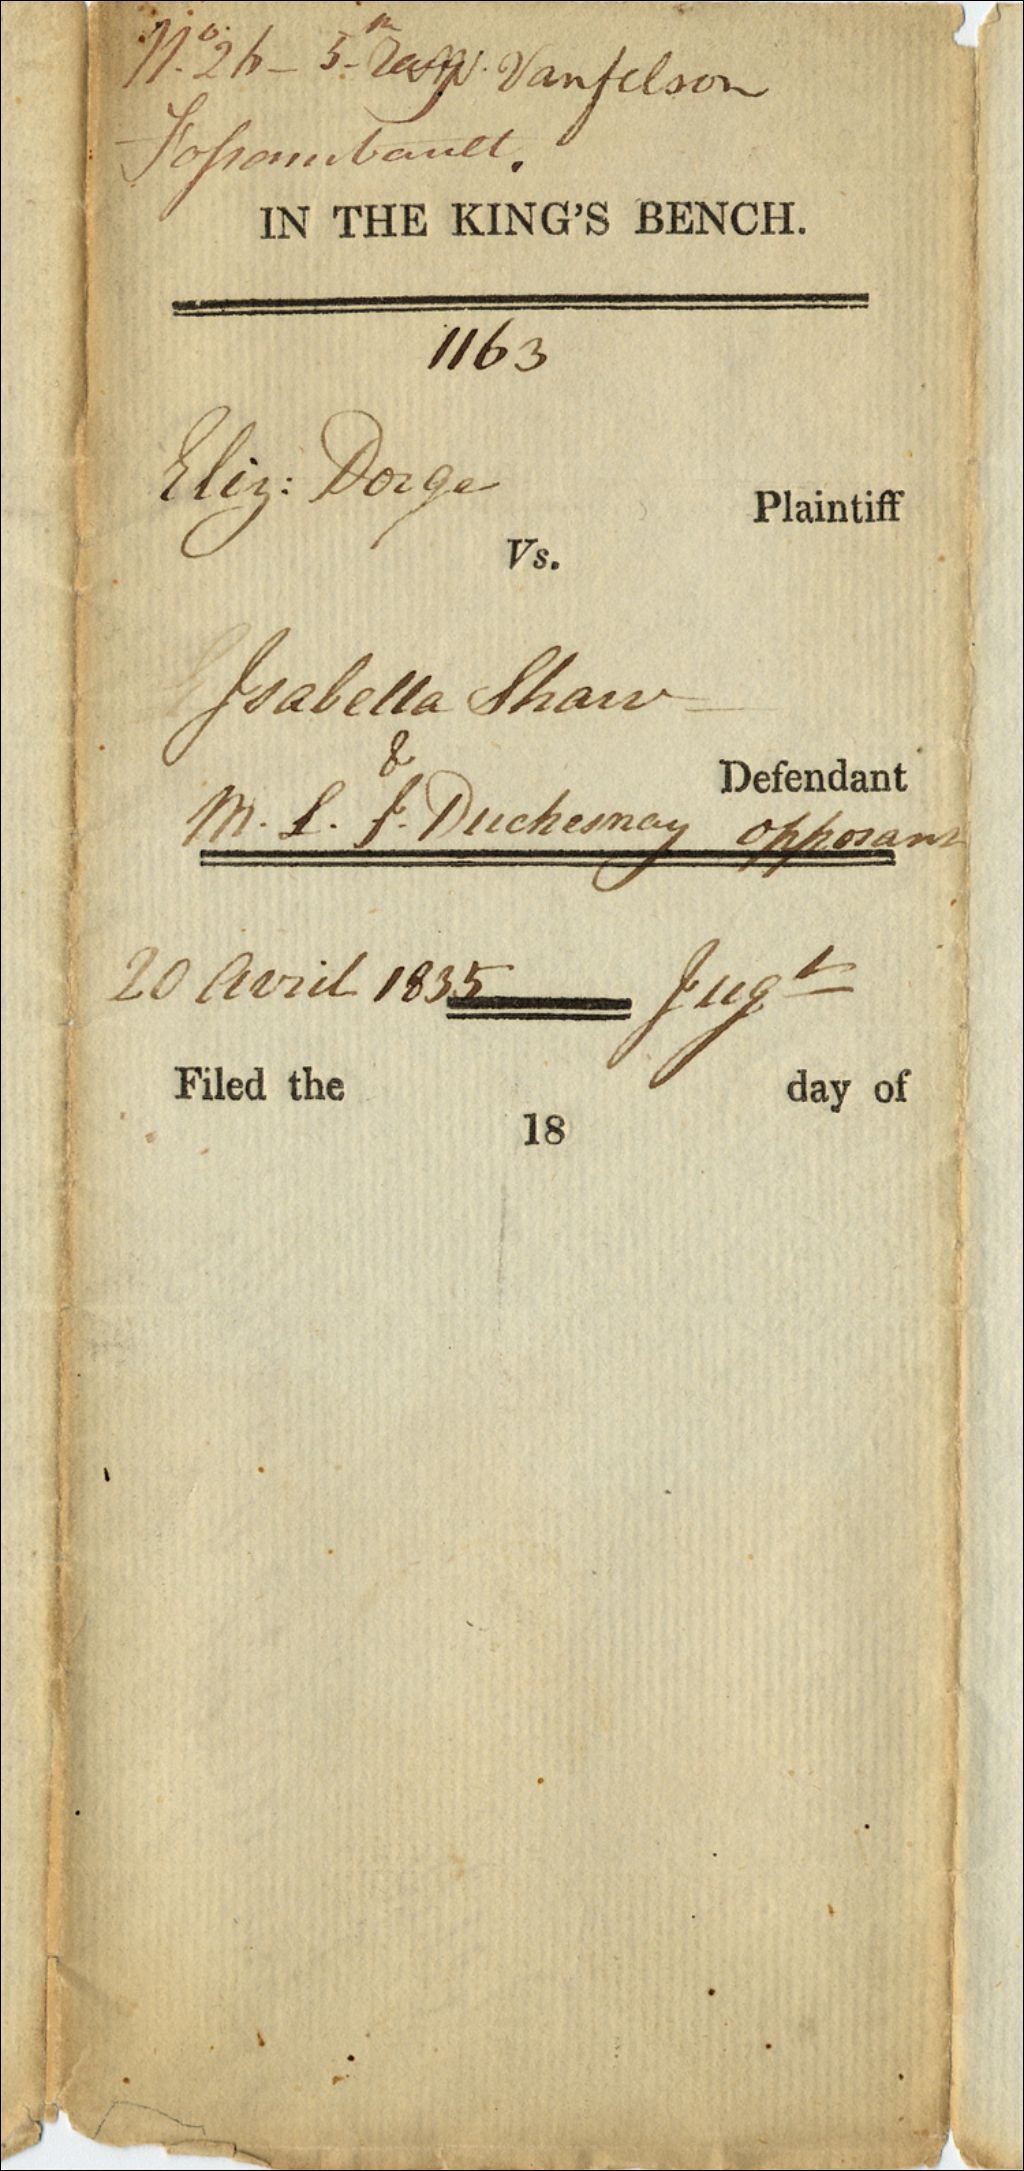 No. 26 - 5 - Vanfelson
Fossambault.
IN THE KING'S BENCH.
1163
Eliz: Dorge
Plaintiff
Vs.
Isabella Shaw
&
Defendant
M. L. J. Duchesnay opposant
20 Avril 1835 Jugt
Filed the day of
18